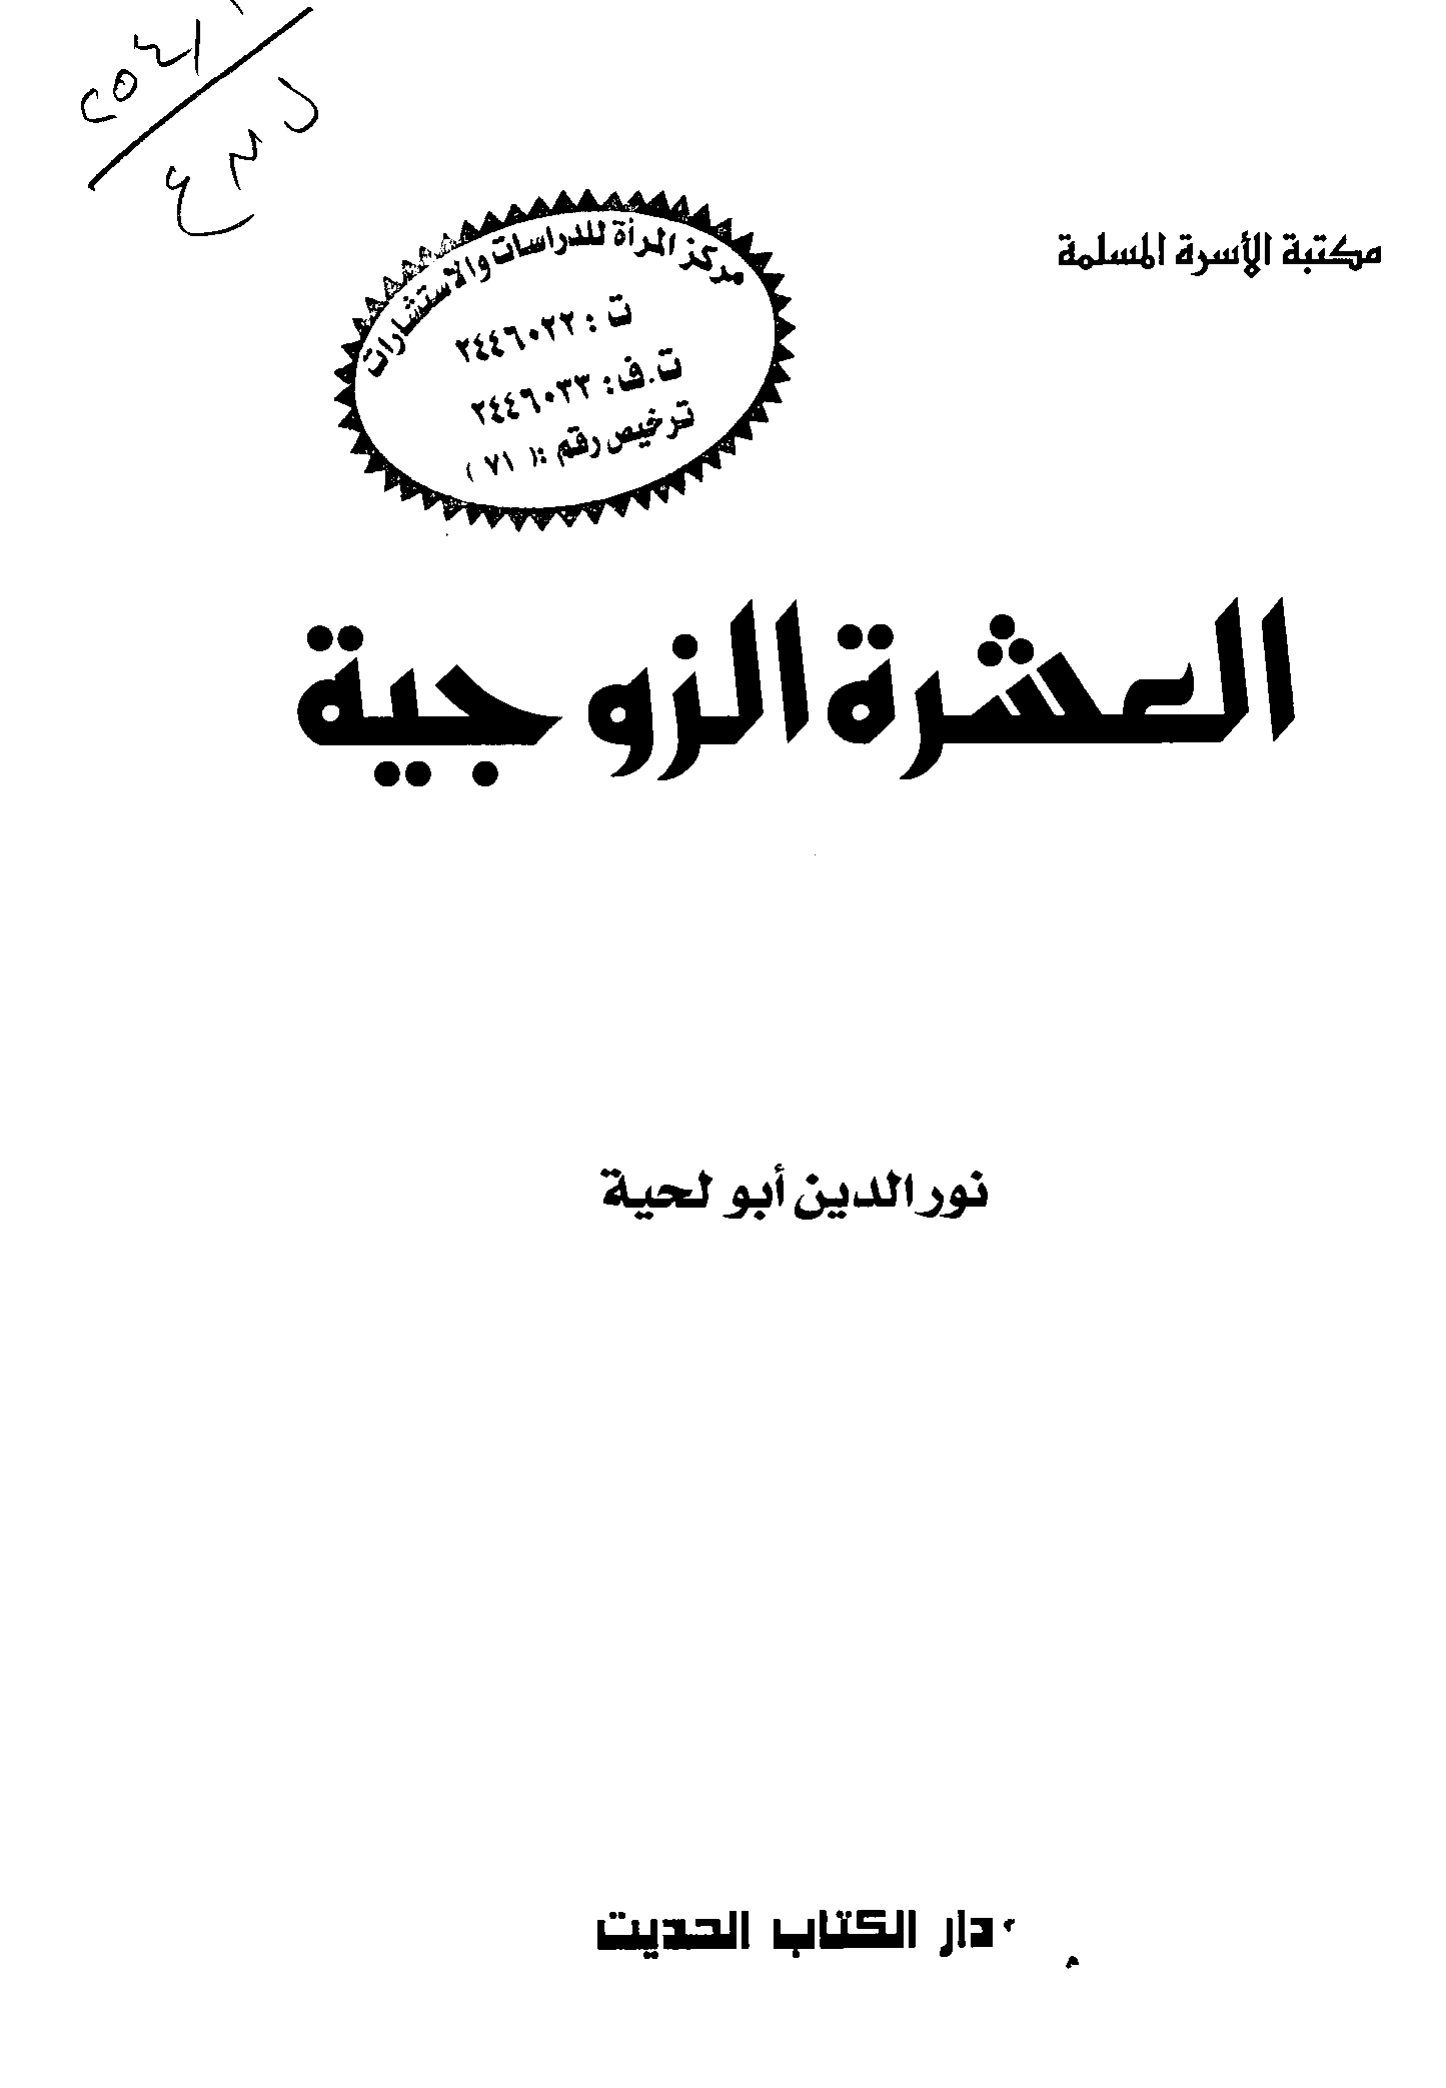 مكتبة الأسرة المسلمة
مركز المرأة للدراسات والاستشارات
ت : ٢٤٤٦٠٢٢
ت.ف: ٢٤٤٦٠٣٣
ترخيص رقم :( ٧١ )
العشرة الزوجية
نور الدين أبو لحية
دار الكتاب الحديث